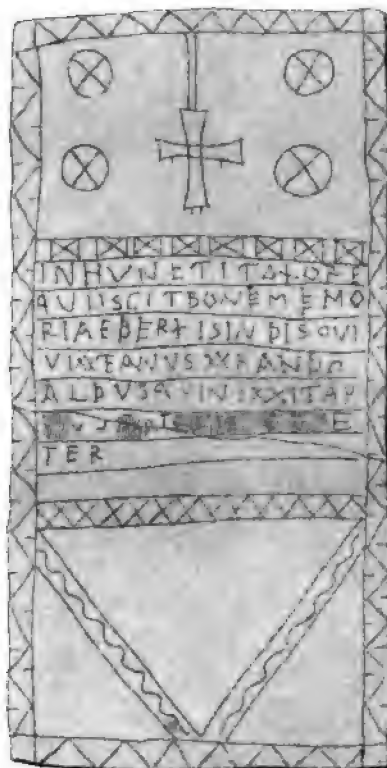 INHVNCTITOLORE
QVIISCITBONEMEMO
RIAEBERTISINDISQVI
VIXTANVSXXRANDO
ALDVSQVINIXXITAN
TER